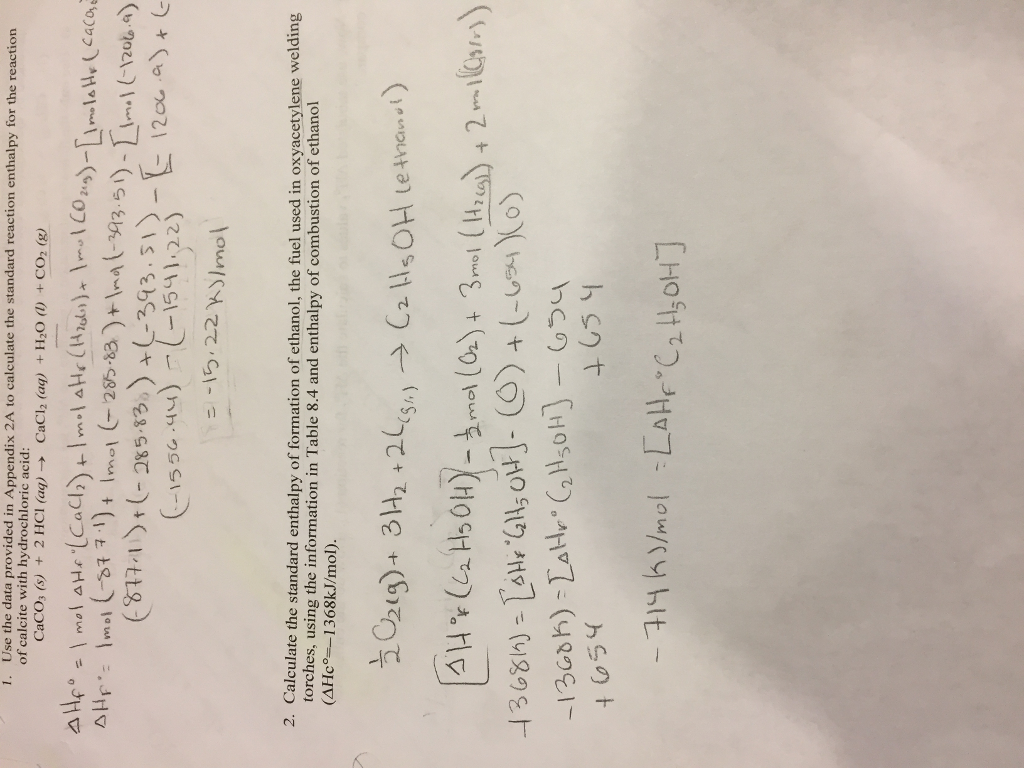 1. Use the data provided in Appendix 2A to calculate the standard reaction enthalpy for the reaction
of calcite with hydrochloric acid:
CaCO₃ (s) + 2 HCl (aq) → CaCl₂ (aq) + H₂O (l) + CO₂ (g)
ΔHf° = 1 mol ΔHf° (CaCl₂) + 1 mol ΔHf (H₂O(l)) + 1 mol (CO₂(g)) - [1 mol ΔHf (CaCO₃
ΔHf° = 1mol (-877.1) + 1mol (-285.83) + 1mol (-393.51) - [1mol (-1206.9)
(-877.11) + (-285.83) + (-393.51) - [- 1206.9) + (-
(-1556.44) - (-1541.22)
= -15.22 kJ/mol
2. Calculate the standard enthalpy of formation of ethanol, the fuel used in oxyacetylene welding
torches, using the information in Table 8.4 and enthalpy of combustion of ethanol
(ΔHc°=-1368kJ/mol).
½O₂(g) + 3H₂ + 2C(gr) → C₂H₅OH (ethanol)
[ΔH°f (C₂H₅OH)] - ½mol (O₂) + 3mol (H₂(g)) + 2mol (C(gr))
-1368kJ = [ΔHf° C₂H₅OH] - (0) + (-654)(0)
-1368kJ = [ΔHf° C₂H₅OH] - 654
+654 +654
-714 kJ/mol = [ΔHf° C₂H₅OH]